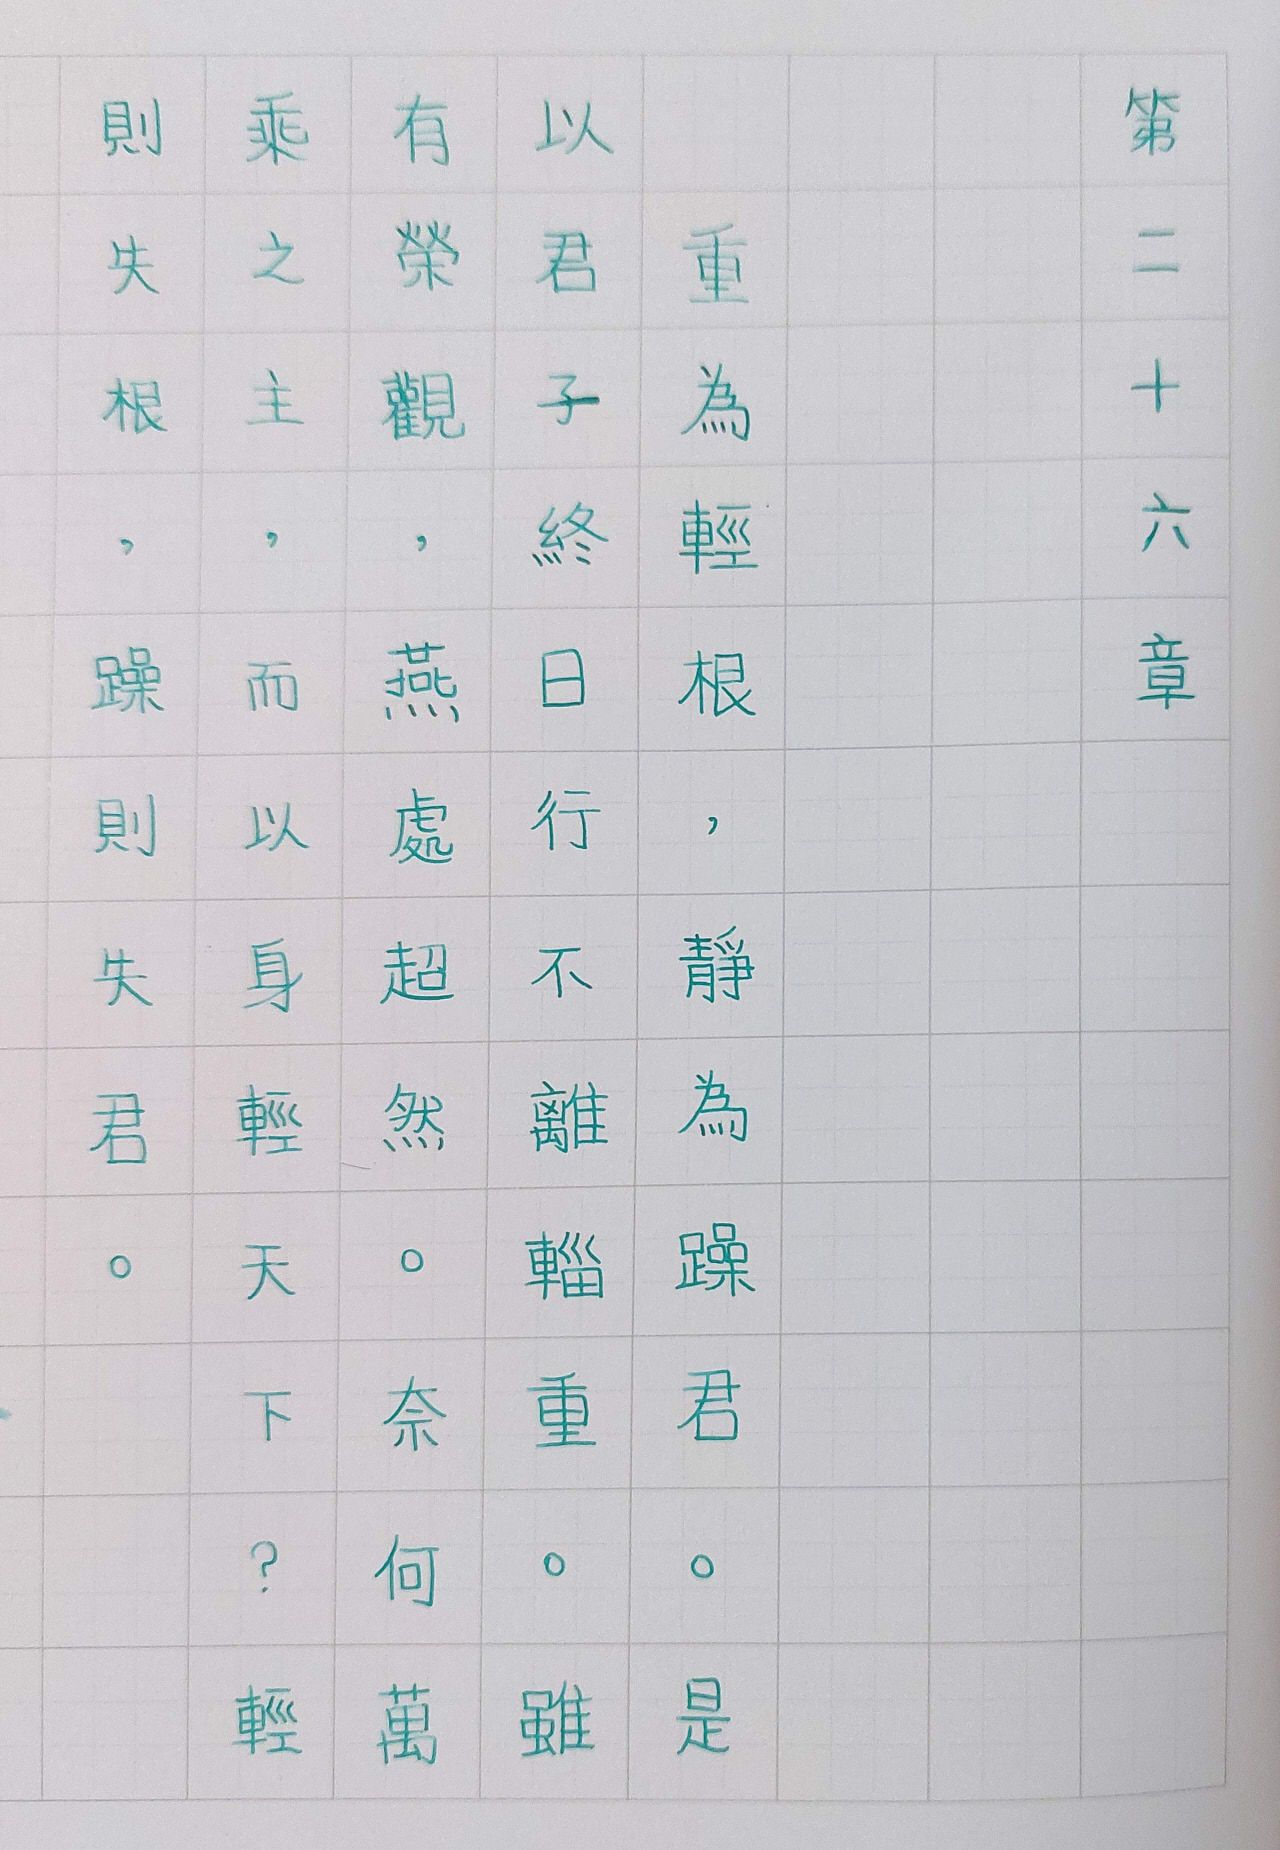 第二十六章
重為輕根，靜為躁君。是
以君子終日行不離輜重。雖
有榮觀，燕處超然。奈何萬
乘之主，而以身輕天下？輕
則失根，躁則失君。